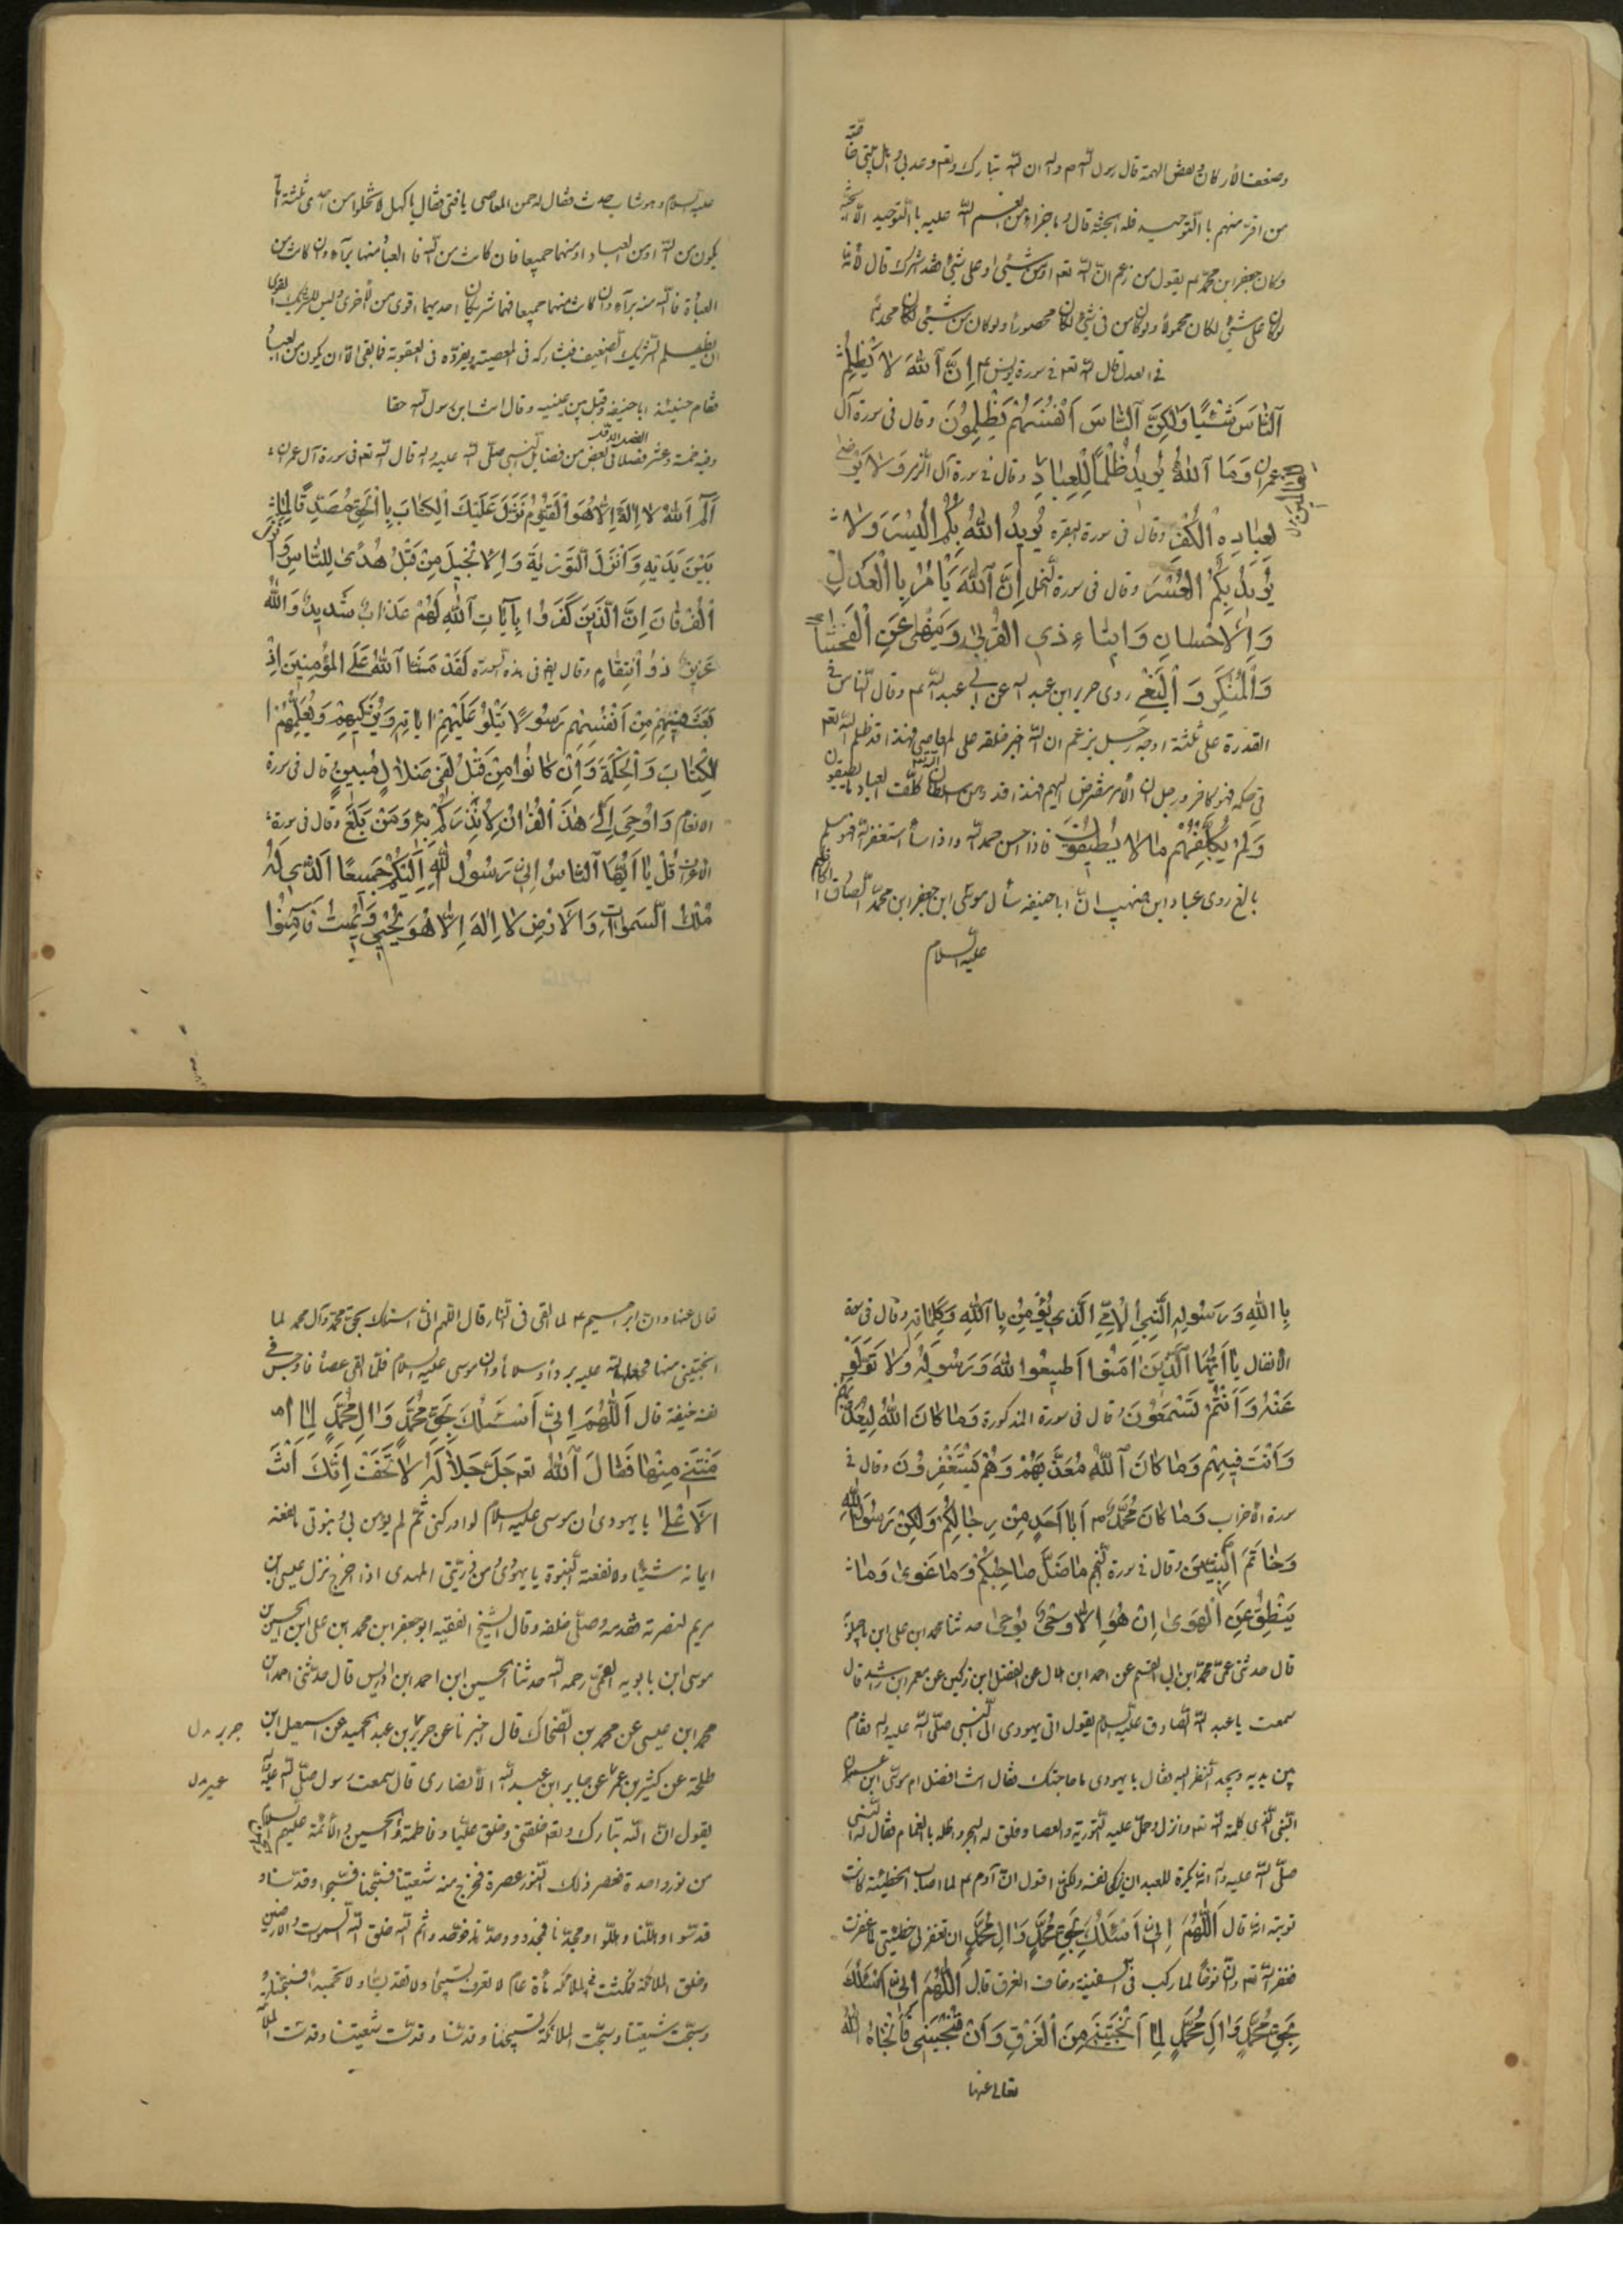 وضعف الأركان وبعض الهمة قال رسول الله ص واله ان الله تبارك وتعه وعدنى
من اقر منهم باالتوحيد فله الجنة قال وما جزاء من انعم الله عليه باالتوحيد الا الجنة
وكان جعفر ابن محمد ع يقول من زعم ان الله تعه اومن شيئ او على شيئ فقد اشرك قال لانه
لوكان على شيئ لكان محمولا ولوكان من فى شيئ لكان محصورا ولوكان من شيئ لكان محدثا
فى العدل قال الله تعه فى سورة يونس ع اِنَّ اللّٰهَ لا يَظْلِمُ
اَلنّاسَ شَيْئًا وَلٰكِنَّ اَلنّاسَ اَنْفُسَهُمْ يَظْلِمُونَ وقال فى سورة آل
عمران وَمَا اَللّٰهُ يُرِيدُ ظُلْمًا لِلْعِبادِ وقال فى سورة آل الزمر وَلا يَرْضىٰ
لِعِبادِهِ الْكُفْرَ وقال فى سورة البقرة يُرِيدُ اللّٰهُ بِكُمُ الْيُسْرَ وَلا
يُرِيدُ بِكُمُ الْعُسْرَ وقال فى سورة النحل اِنَّ اَللّٰهَ يَأْمُرُ بِاالْعَدْلِ
وَاِلاحْسانِ وَايتاءِ ذِى القُرْبىٰ وَيَنْهىٰ عَنِ الْفَحْشاءِ
وَاَلْمُنْكَرِ وَالْبَغْىِ روى حريز ابن عبد الله عن ابى عبد الله ع وقال الناس فى
القدرة على ثلثة اوجه رجل يزعم ان الله اجبر خلقه على المعاصى فهذا قد ظلم الله تعه
فى حكمه فهو كافر ورجل ان الأمر مفوض اليهم فهذا قد وهن سلطان كلف العباد ما يطيقون
وَلَمْ يُكَلِّفْهُمْ ما لا يُطيقُونَ فاذا احسن حمد الله واذا ساأ استغفر الله فهو مسلم
بالغ روى عباد ابن صهيب ان اباحنيفه سأل موسى ابن جعفر ابن محمد الصادق
عليه السلام
عليه السلام وهو شاب حدث فقال له ممن المعاصى يافتى فقال ياكهل لا تخلوا من احدى ثلثة
يكون من الله او من العباد او منهما جميعا فان كانت من الله فا العباد منها برآء وان كانت من
العباد فالله منه برآء وان كانت منهما جميعا فهما شريكان احديهما اقوى من الأخرى وليس للشريك القوى
ان يظلم الشريك الضعيف فيشاركه فى المعصية ويفرده فى العقوبة فما بقى الا ان يكون من العباد
فقام حينئذ اباحنيفه وقبل بين عينيه وقال انت ابن رسول الله حقا
وفيه خمسة وعشر فصلا فى بعض من فضايل النبى صلى الله عليه واله قال الله تعه فى سورة آل عمران
آلم اَللّٰهُ لا اِلٰهَ اِلّا هُوَ الْحَىُّ الْقَيُّومُ نَزَّلَ عَلَيْكَ الْكِتابَ بِاالْحَقِّ مُصَدِّقًا لِما
بَيْنَ يَدَيْهِ وَاَنْزَلَ التَّوْريٰةَ وَاِلانْجيلَ مِنْ قَبْلُ هُدًى لِلنّاسِ وَاَنْزَلَ
اَلْفُرْقانَ اِنَّ الَّذينَ كَفَرُوا بِآياتِ اللّٰهِ لَهُمْ عَذابٌ شَديدٌ وَاللّٰهُ
عَزيزٌ ذُو اْنتِقامٍ وقال ايض فى هذه السورة لَقَدْ مَنَّ اَللّٰهُ عَلَى المُؤْمِنينَ اِذْ
بَعَثَ فيهِمْ مِنْ اَنْفُسِهِمْ رَسُولًا يَتْلُوْ عَلَيْهِمْ اياتِهِ وَيُزَكّيهِمْ وَيُعَلِّمُهُمُ ا
لْكِتابَ وَاَلْحِكْمَةَ وَاِنْ كانُوا مِنْ قَبْلُ لَفى ضَلالٍ مُبينٍ قال فى سورة
الانعام وَاُوحِىَ اِلَىَّ هٰذَا الْقُرْآنُ لاُنْذِرَكُمْ بِهِ وَمَنْ بَلَغَ وقال فى سورة
الاعراف قُلْ يا اَيُّهَا اَلنّاسُ اِنّى رَسُولُ اللّٰهِ اِلَيْكُمْ جَميعًا اَلَّذى لَهُ
مُلْكُ السَّمواتِ وَالاَرْضِ لا اِلٰهَ اِلّا هُوَ يُحْيى وَيُميتُ فَآمِنُوا
بِااللّٰهِ وَرَسُولِهِ النَّبِىِّ اْلاُمِّىِّ الَّذى يُؤْمِنُ بِااللّٰهِ وَكَلِماتِهِ وقال فى سورة
الانفال يا اَيُّهَا الَّذينَ امَنُوا اَطيعُوا اللّٰهَ وَرَسُولَهُ وَلا تَوَلَّوْا
عَنْهُ وَاَنْتُمْ تَسْمَعُونَ وقال فى سورة المذكورة وَما كانَ اللّٰهُ لِيُعَذِّبَهُمْ
وَاَنْتَ فيهِمْ وَما كانَ اَللّٰهُ مُعَذِّبَهُمْ وَهُمْ يَسْتَغْفِرُونَ وقال فى
سورة الاحزاب وَما كانَ مُحَمَّدٌ ص اَبا اَحَدٍ مِنْ رِجالِكُمْ وَلٰكِنْ رَسُولَ اللّٰهِ
وَخاتَمَ النَّبِيّينَ وقال فى سورة النجم ما ضَلَّ صاحِبُكُمْ وَما غَوىٰ وَما
يَنْطِقُ عَنِ الْهَوىٰ اِنْ هُوَ اِلّا وَحْىٌ يُوحىٰ حدثنا محمد ابن على ابن ماجيلويه
قال حدثنى عمى محمد ابن ابى القسم عن احمد ابن هلال عن الفضل ابن دكين عن معمر ابن راشد قال
سمعت يا عبد الله الصادق عليه السلام يقول اتى يهودى الى النبى صلى الله عليه واله فقام
بين يديه ويحد النظر اليه فقال يا يهودى ما حاجتك فقال انت افضل ام موسى ابن عمران
النبى الذى كلمه الله تعه وانزل وحل عليه التورية والعصا وفلق له البحر واظله بالغمام فقال له النبى
صلى الله عليه واله انه يكره للعبد ان يزكى نفسه ولكنى اقول ان آدم ع لما اصاب الخطيئة كانت
توبته انه قال اَللّٰهُمَّ اِنّى اَسْئَلُكَ بِحَقِّ مُحَمَّدٍ وَالِ مُحَمَّدٍ ان تغفر لى خطيئتى لما غفرت
فغفر الله تعه وان نوحا لما ركب فى السفينة وخاف الغرق قال اَللّٰهُمَّ اِنّى اَسْئَلُكَ
بِحَقِّ مُحَمَّدٍ وَالِ مُحَمَّدٍ لَمّا اَنْجَيْتَنى مِنَ الْغَرَقِ فَاَنْجاهُ اللّٰهُ
تعالى عنها
تعالى عنها وان ابرهيم ع لما القى فى النار قال اللهم انى اسئلك بحق محمد وآل محمد لما
انجيتنى منها فجعلها الله عليه بردا وسلاما وان موسى عليه السلام فلما القى عصاه فاوجس فى
نفسه خيفة قال اَللّٰهُمَّ اِنّى اَسْئَلُكَ بِحَقِّ مُحَمَّدٍ وَالِ مُحَمَّدٍ لَمّا اٰ
مَنْتَنى مِنْها فَقالَ اَللّٰهُ تعه جَلَّ جَلالُهُ لا تَخَفْ اِنَّكَ اَنْتَ
اَلاَعْلىٰ يا يهودى ان موسى عليه السلام لو ادركنى ثم لم يؤمن بى وبنبوتى ما نفعه
ايمانه شيئا ولا نفعته النبوة يا يهودى ومن ذريتى المهدى اذا خرج نزل عيسى ابن
مريم لنصرته فقدمه وصلى خلفه وقال الشيخ الفقيه ابو جعفر ابن محمد ابن على ابن الحسين ابن
موسى ابن بابويه القمى رحمه الله حدثنا الحسين ابن احمد ابن ادريس قال حدثنى احمد ابن
محمد ابن عيسى عن محمد بن الضحاك قال اخبرنا عن جريز بن عبد الحميد عن اسمعيل ابن
جرير ل
طلحة عن كثير بن عمر عن جابر ابن عبد الله الأنصارى قال سمعت رسول صلى الله عليه واله
عمير ل
يقول ان الله تبارك وتعه خلقنى وخلق عليا وفاطمة والحسن والحسين والأئمة عليهم السلام
من نور واحدة فعصر ذلك النور عصرة فخرج منه شيعتنا فسبحنا فسبحوا وقدسنا و
قدسوا وهللنا وهللوا ومجدنا فمجدوا ووحدنا فوحدوا ثم الله خلق الله السموات والارضين
وخلق الملائكة فمكثت الملائكة مأة عام لا تعرف تسبيحا ولا تقديسا ولا تحميدا فسبحنا
وسبحت شيعتنا وسبحت الملائكة لتسبيحنا وقدسنا وقدست شيعتنا وقدست الملائكة